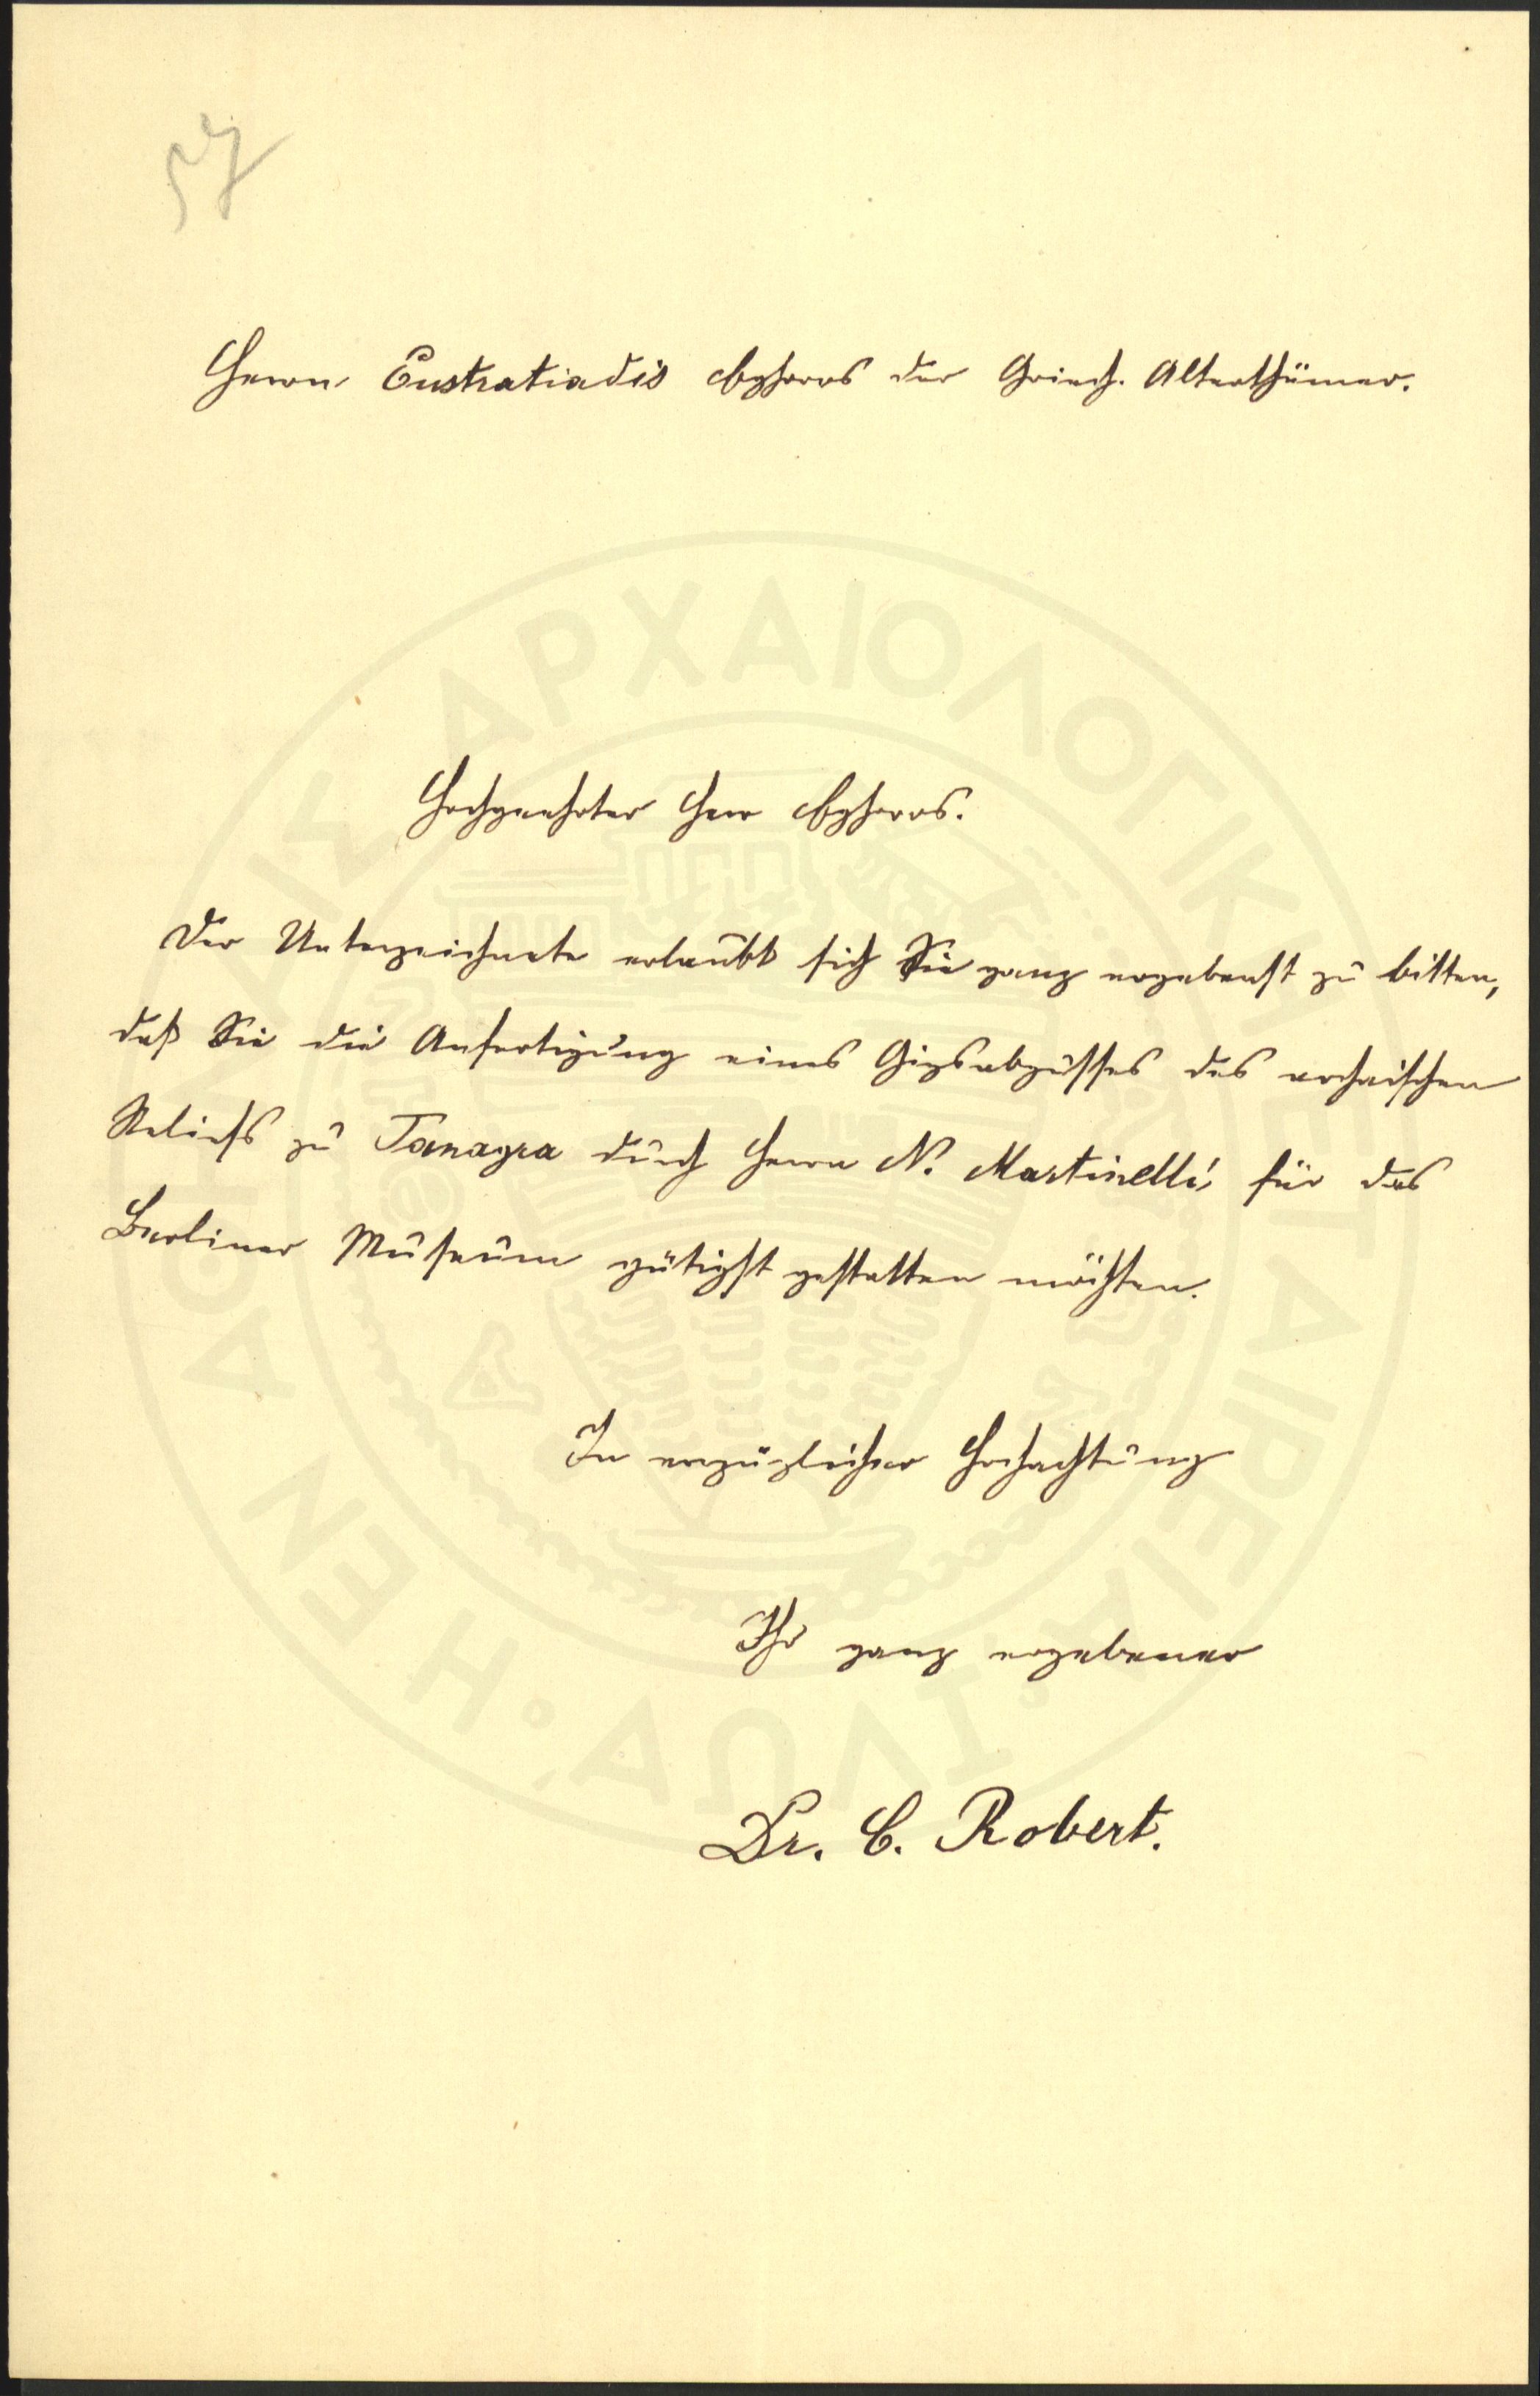 57
Herrn Eustratiadis Ephoros der Griech. Alterthümer.
Hochgeehrter Herr Ephoros.
Der Unterzeichnete erlaubt sich Sie ganz ergebenst zu bitten,
daß Sie die Anfertigung eines Gipsabgusses des archaischen
Reliefs zu Tanagra durch Herrn N. Martinelli für das
Berliner Museum gütigst gestatten möchten.
In vorzüglicher Hochachtung
Ihr ganz ergebener
Dr. C. Robert.
Η ΕΝ ΑΘΗΝΑΙΣ ΑΡΧΑΙΟΛΟΓΙΚΗ ΕΤΑΙΡΕΙΑ